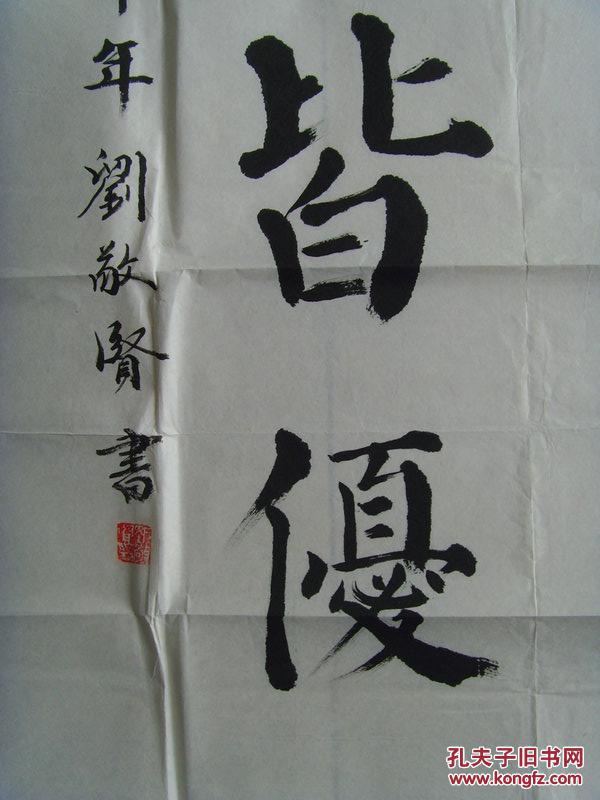 皆優
年劉敬賢書
孔夫子旧书网
www.kongfz.com